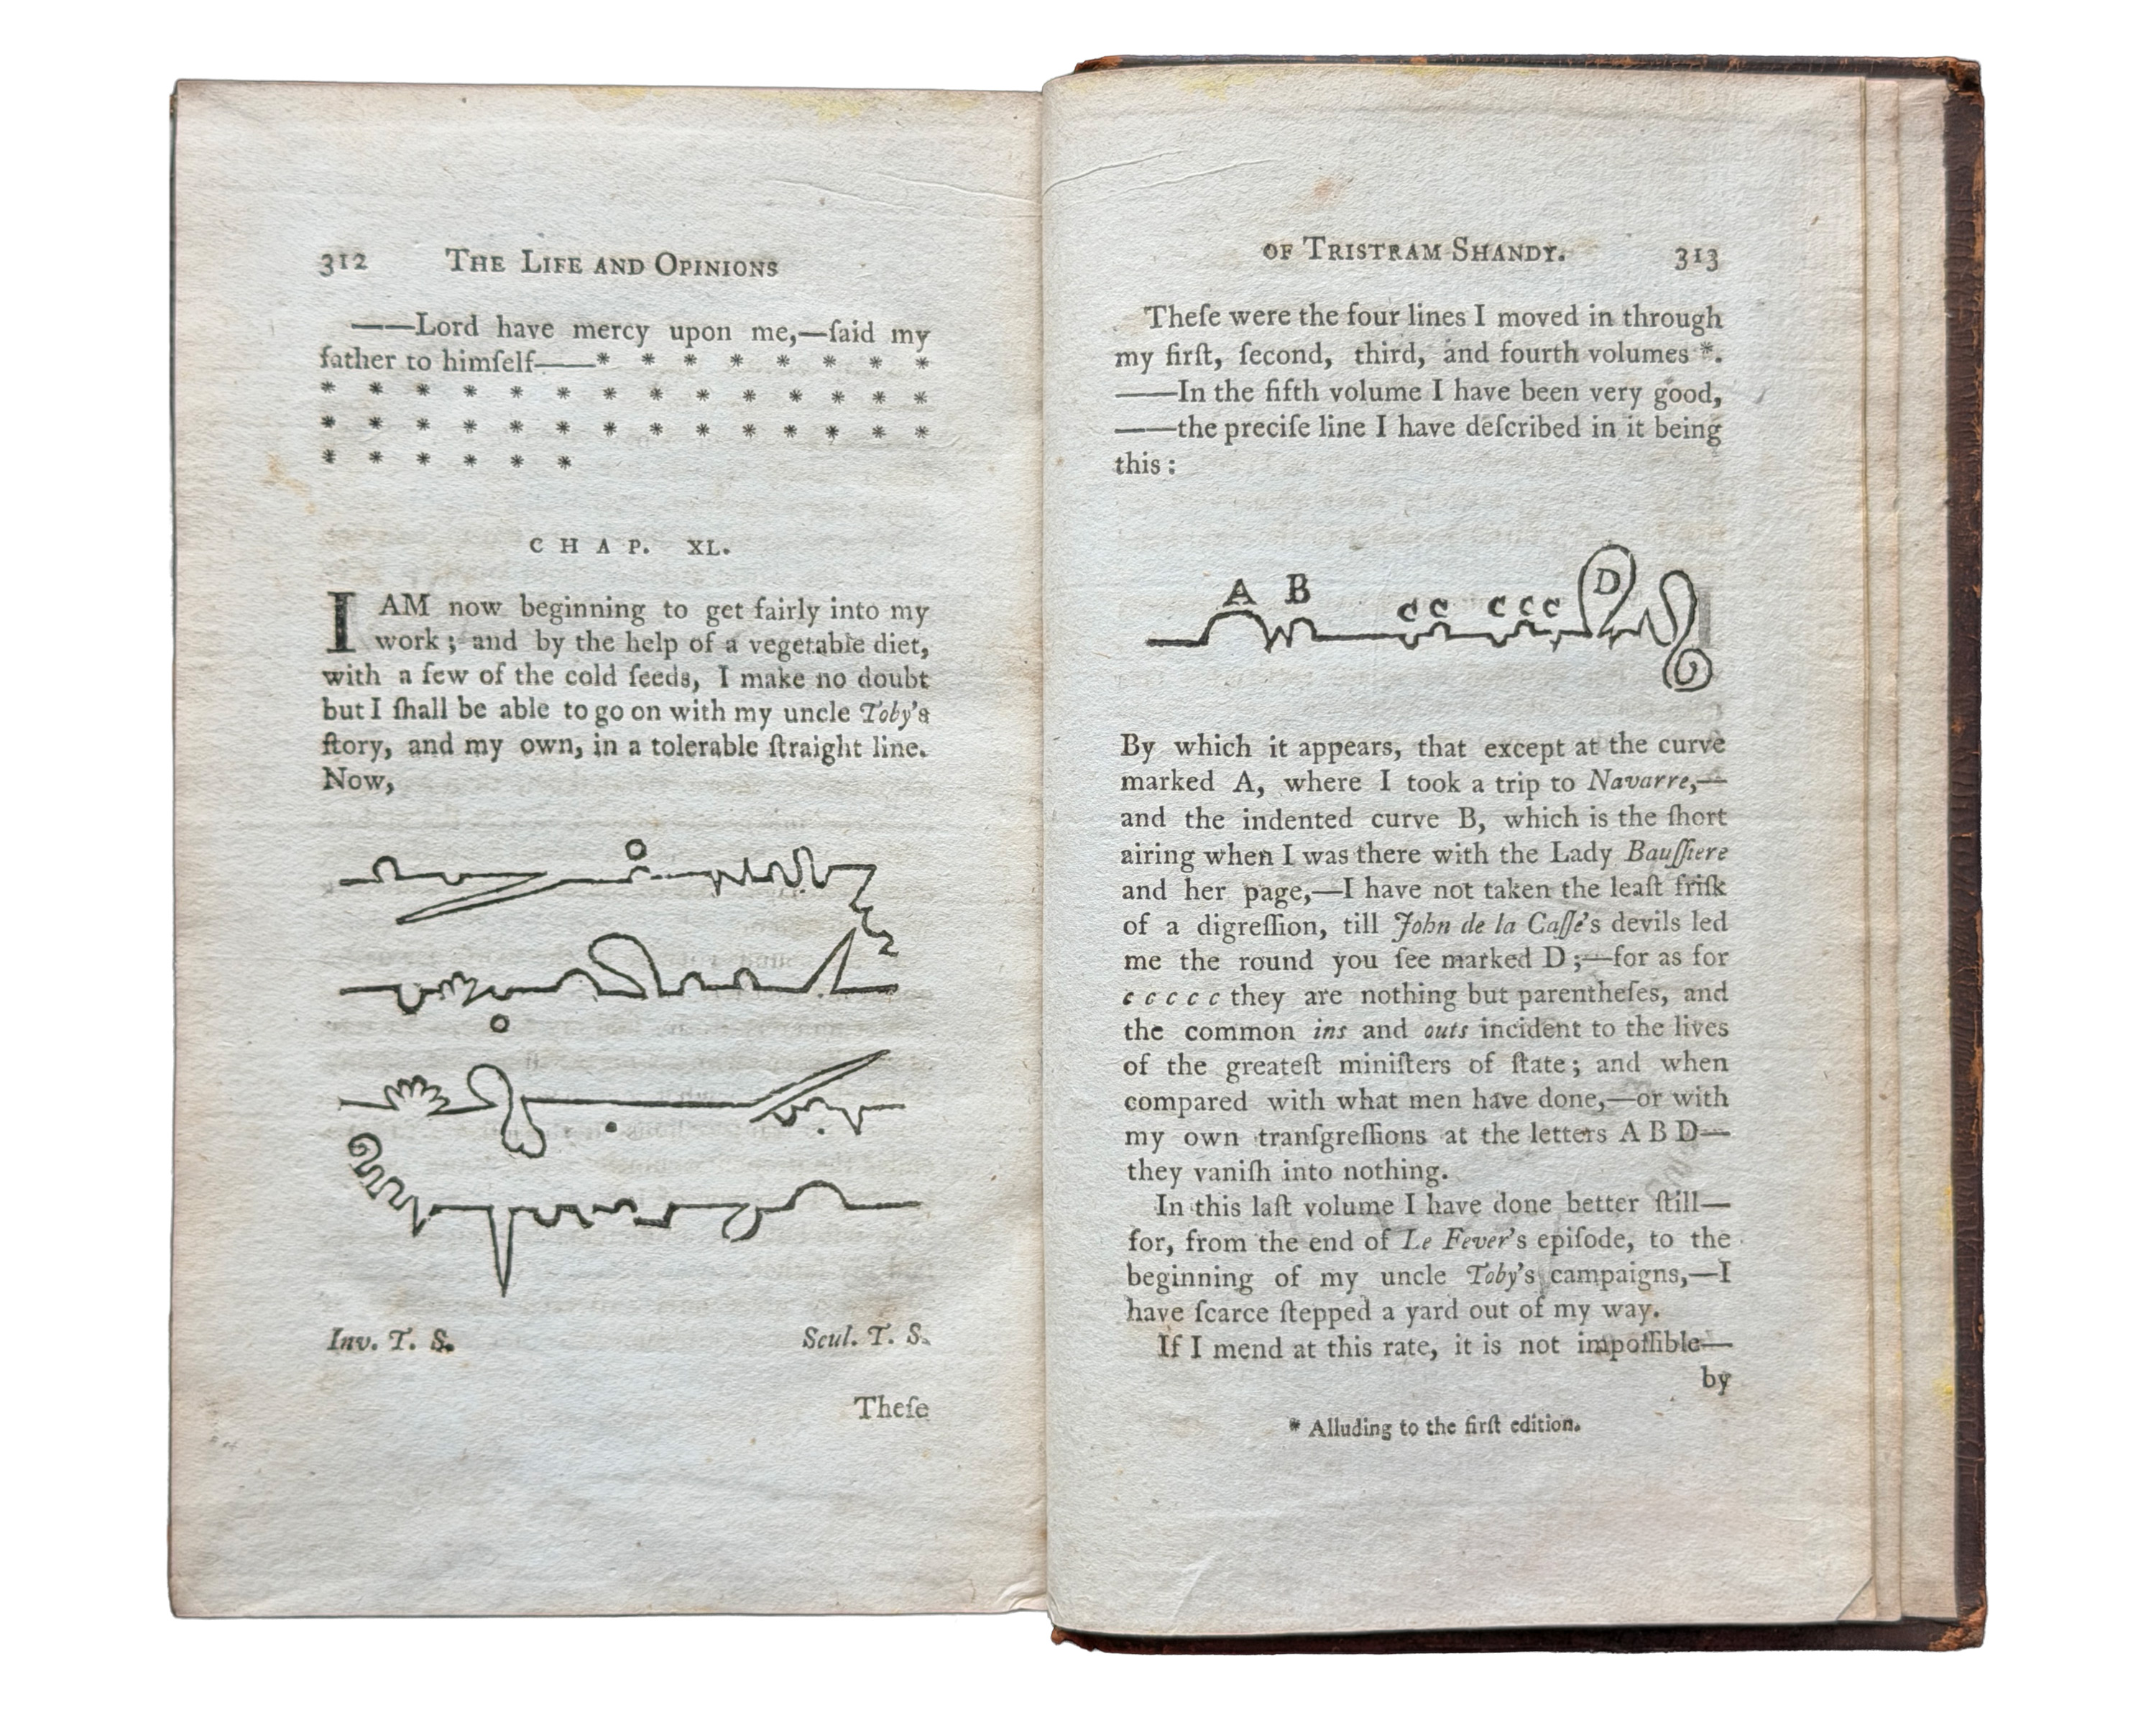 312 THE LIFE AND OPINIONS
——Lord have mercy upon me,—ſaid my
father to himſelf——* * * * * * * *
* * * * * * * * * * * * * *
* * * * * * * * * * * * * *
* * * * * *
CHAP. XL.
I AM now beginning to get fairly into my
work ; and by the help of a vegetable diet,
with a few of the cold ſeeds, I make no doubt
but I ſhall be able to go on with my uncle Toby's
ſtory, and my own, in a tolerable ſtraight line.
Now,
Inv. T. S. Scul. T. S.
Theſe
OF TRISTRAM SHANDY. 313
Theſe were the four lines I moved in through
my firſt, ſecond, third, and fourth volumes *.
——In the fifth volume I have been very good,
——the preciſe line I have deſcribed in it being
this :
A B c c c c c D
By which it appears, that except at the curve
marked A, where I took a trip to Navarre,—
and the indented curve B, which is the ſhort
airing when I was there with the Lady Bauſſiere
and her page,—I have not taken the leaſt friſk
of a digreſſion, till John de la Caſſe's devils led
me the round you ſee marked D ;—for as for
c c c c c they are nothing but parentheſes, and
the common ins and outs incident to the lives
of the greateſt miniſters of ſtate ; and when
compared with what men have done,—or with
my own tranſgreſſions at the letters A B D—
they vaniſh into nothing.
In this laſt volume I have done better ſtill—
for, from the end of Le Fever's epiſode, to the
beginning of my uncle Toby's campaigns,—I
have ſcarce ſtepped a yard out of my way.
If I mend at this rate, it is not impoſſible—
by
* Alluding to the firſt edition.